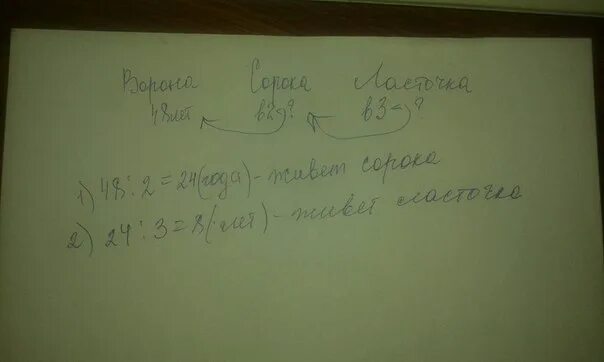 Ворона Сорока Ласточка
48лет в2 ? в3 ?
1) 48 : 2 = 24 (года) - живет сорока
2) 24 : 3 = 8 (лет) - живет ласточка